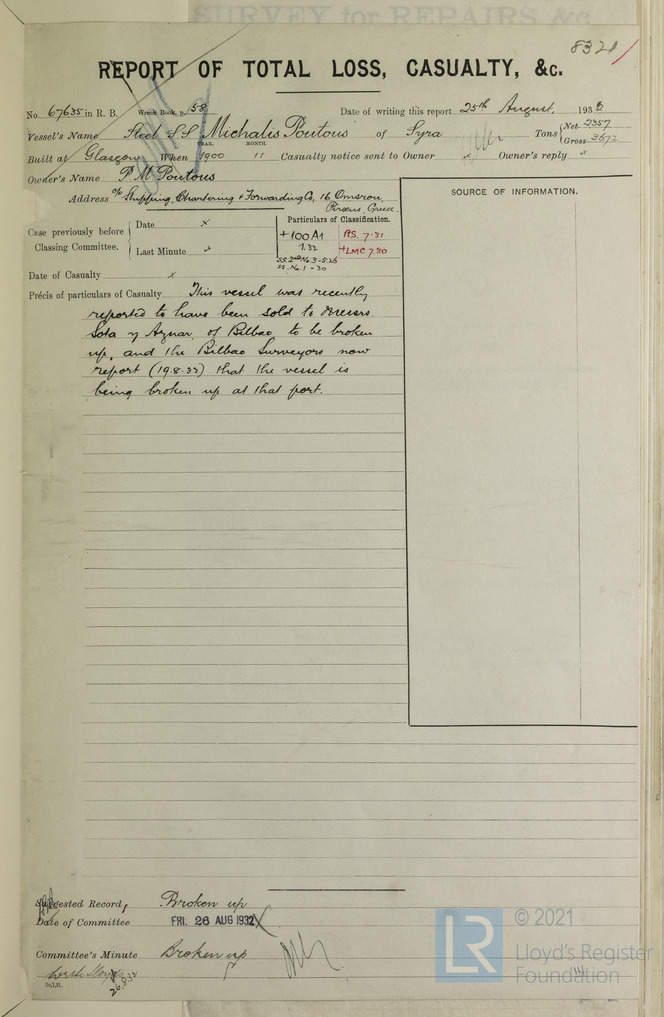 SURVEY for REPAIRS &c.
8321
REPORT OF TOTAL LOSS, CASUALTY, &c.
No. 67635 in R. B. Wreck Book p. 58 Date of writing this report 25th August, 1932
Vessel's Name Steel SS Michalis Poutous of Syra Tons Net 2357
Gross 3672
YEAR. MONTH
Built at Glasgow When 1900 11 Casualty notice sent to Owner x Owner's reply x
Owner's Name P. M. Poutous
Address c/o Shipping, Chartering & Forwarding Co, 16 Omirou,
Piraeus, Greece.
SOURCE OF INFORMATION.
Particulars of Classification.
Case previously before Classing Committee. Date x
Last Minute x
+100A1 BS. 7.31
1.32 +LMC 7.30
SS 2nd No. 3 - 5.26
SS. No. 1 - 30
Date of Casualty x
Précis of particulars of Casualty This vessel was recently
reported to have been sold to Messrs
Sota y Aznar, of Bilbao, to be broken
up, and the Bilbao Surveyors now
report (19.8.32) that the vessel is
being broken up at that port.
Suggested Record, Broken up
Date of Committee FRI. 26 AUG 1932
Committee's Minute Broken up
26.8.32
© 2021
LR Lloyd's Register
Foundation